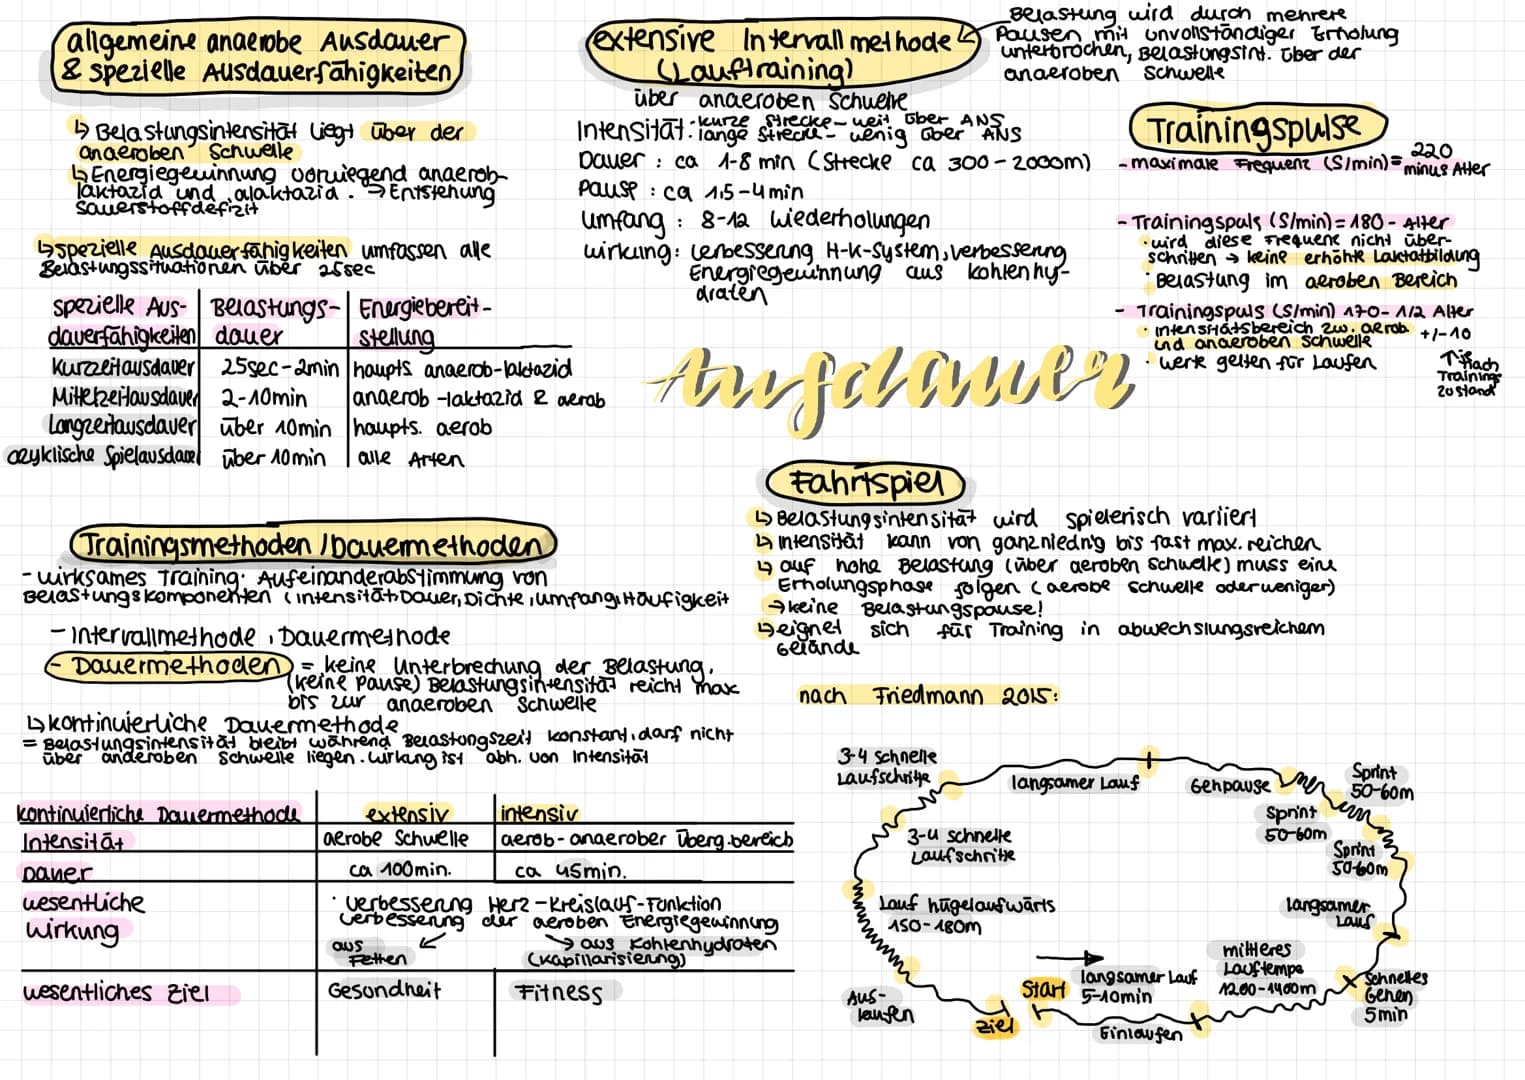 allgemeine anaerobe Ausdauer
& spezielle Ausdauerfähigkeiten
↳ Belastungsintensität liegt über der
anaeroben Schwelle
↳ Energiegewinnung vorwiegend anaerob-
laktazid und alaktazid. → Entstehung
Sauerstoffdefizit
↳ spezielle Ausdauerfähigkeiten umfassen alle
Belastungssituationen über 25sec
spezielle Aus- | Belastungs- | Energiebereit-
dauerfähigkeiten | dauer | stellung
Kurzzeitausdauer | 25sec-2min | haupts. anaerob-laktazid
Mittelzeitausdauer | 2-10min | anaerob-laktazid & aerob
Langzeitausdauer | über 10min | haupts. aerob
azyklische Spielausdauer | über 10min | alle Arten
Trainingsmethoden / Dauermethoden
- wirksames Training: Aufeinanderabstimmung von
Belastungskomponenten (Intensität, Dauer, Dichte, Umfang, Häufigkeit
- Intervallmethode, Dauermethode
- Dauermethoden = keine Unterbrechung der Belastung,
(keine Pause) Belastungsintensität reicht max
bis zur anaeroben Schwelle
↳ kontinuierliche Dauermethode
= Belastungsintensität bleibt während Belastungszeit konstant, darf nicht
über anderoben Schwelle liegen. Wirkung ist abh. von Intensität
kontinuierliche Dauermethode | extensiv | intensiv
Intensität | aerobe Schwelle | aerob-anaerober Überg.bereich
Dauer | ca 100min. | ca 45min.
wesentliche Wirkung | · Verbesserung Herz-Kreislauf-Funktion
Verbesserung der aeroben Energiegewinnung
aus Fetten ↙ → aus Kohlenhydraten
(Kapillarisierung)
wesentliches Ziel | Gesundheit | Fitness
extensive Intervallmethode
(Lauftraining)
Belastung wird durch mehrere
Pausen mit unvollständiger Erholung
unterbrochen, Belastungsint. über der
anaeroben Schwelle
über anaeroben Schwelle
Intensität: kurze Strecke - weit über ANS
lange Strecke - wenig über ANS
Dauer: ca 1-8 min (Strecke ca 300-2000m)
Pause: ca 1,5-4min
Umfang: 8-12 Wiederholungen
Wirkung: Verbesserung H-K-System, Verbesserung
Energiegewinnung aus Kohlenhy-
draten
Trainingspulse
- maximale Frequenz (S/min) = 220
minus Alter
- Trainingspuls (S/min) = 180 - Alter
· wird diese Frequenz nicht über-
schritten → keine erhöhte Laktatbildung
· Belastung im aeroben Bereich
- Trainingspuls (S/min) 170 - 1/2 Alter
· Intensitätsbereich zw. aerob. +/-10
und anaeroben Schwelle
· werte gelten für Laufen
↑ je nach
Trainings
zustand
Ausdauer
Fahrtspiel
↳ Belastungsintensität wird spielerisch variiert
↳ Intensität kann von ganz niedrig bis fast max. reichen
↳ auf hohe Belastung (über aeroben Schwelle) muss eine
Erholungsphase folgen (aerobe Schwelle oder weniger)
→ keine Belastungspause!
↳ eignet sich für Training in abwechslungsreichem
Gelände
nach Friedmann 2015:
3-4 schnelle
Laufschritte
langsamer Lauf
Gehpause
Sprint
50-60m
Sprint
50-60m
Sprint
50-60m
3-4 schnelle
Laufschritte
Lauf hügelaufwärts
150-180m
langsamer
Lauf
→
mittleres
Lauftempo
1200-1400m
Start
langsamer Lauf
5-10min
Schnelles
Gehen
5min
Aus-
laufen
Ziel
Einlaufen